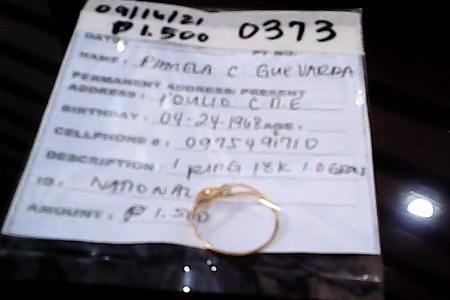 09/14/21
₱1.500 0373
DATE: PT NO.
NAME: PAMELA C GUEVARDA
PERMANENT ADDRESS/PRESENT
ADDRESS: C M E
BIRTHDAY: 04-24-1968 AGE:
CELLPHONE #: 09754991710
DESCRIPTION: 1 RING 18K 1.0
ID: NATIONAL
AMOUNT: ₱1.500